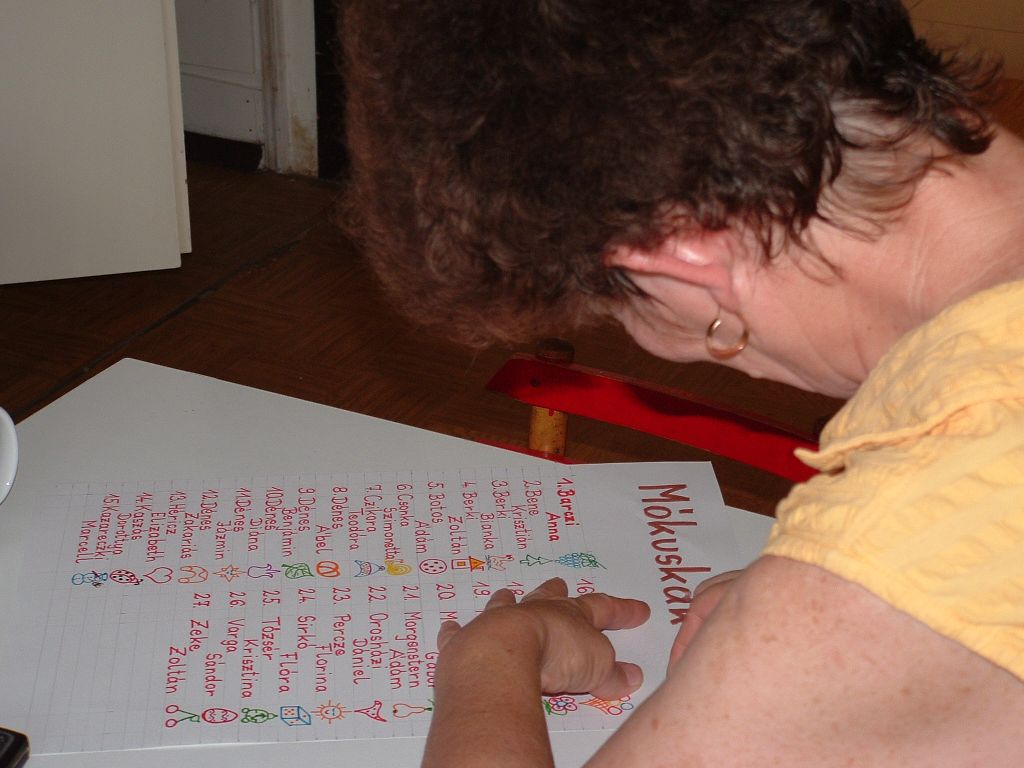 Mókuskák
1. Barczi
Anna
2. Bene
Krisztián
3. Berki
Bianka
4. Berki
Zoltán
5. Botos
Ádám
6. Csonka
Szimonetta
7. Czikora
Teodóra
8. Dénes
Ábel
9. Dénes
Benjámin
10. Dénes
Diána
11. Dénes
Jázmin
12. Dénes
Zakariás
13. Héricz
Elizabeth
14. Kaszás
Dorottya
15. Kazareczki
Marcell
16
18
19
20. M
Gábor
21. Morgenstern
Ádám
22. Oroshazi
Dániel
23. Percze
Florina
24. Sirkó
Flóra
25. Tázsér
Krisztina
26. Varga
Sándor
27. Zeke
Zoltán